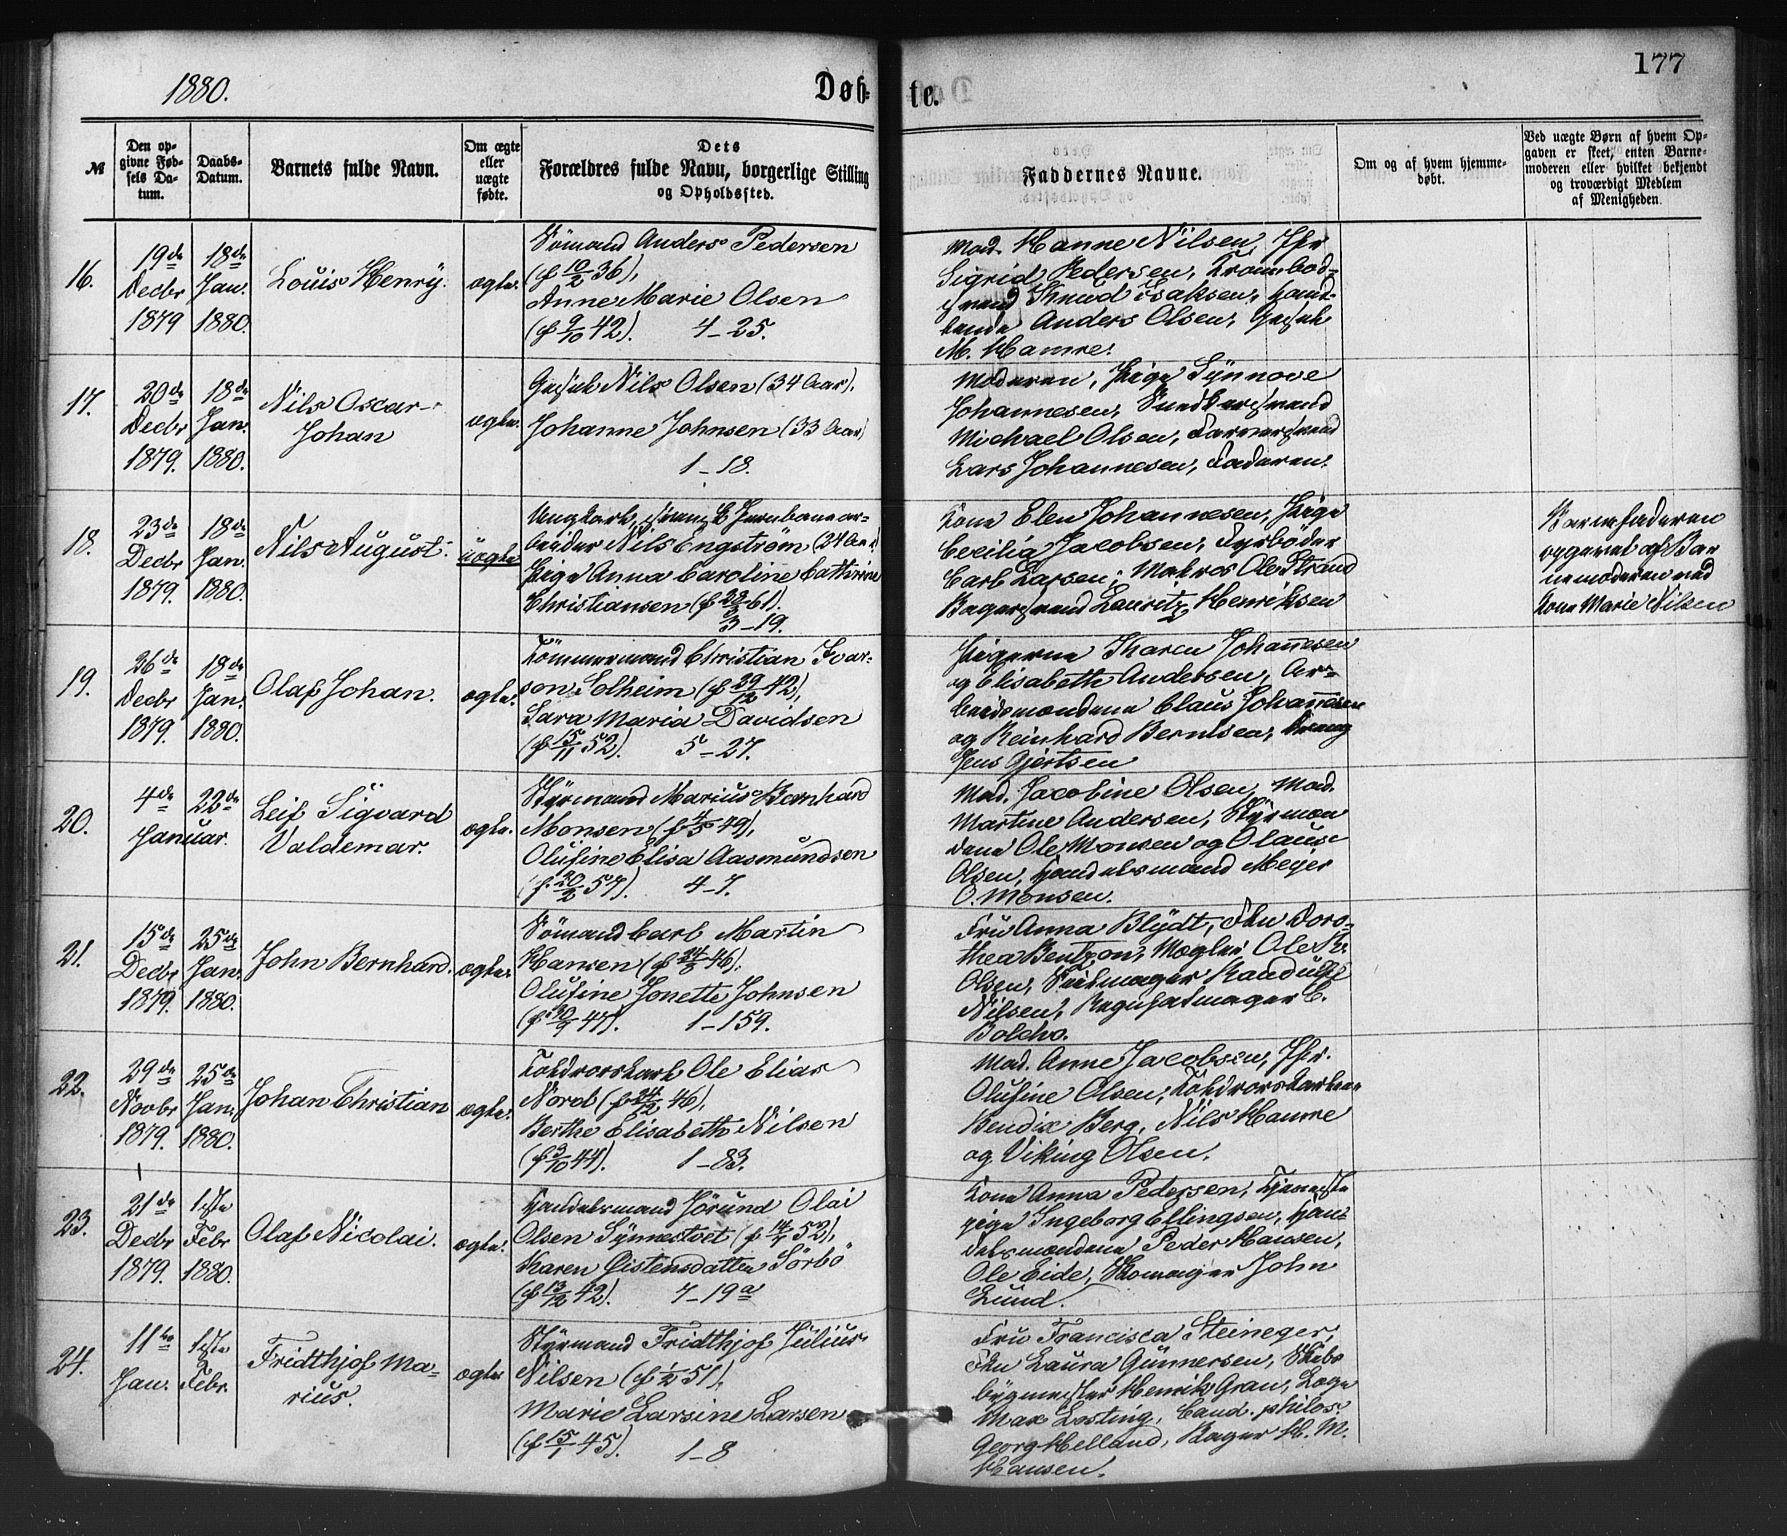 1880.
Døb-
te.
177
№
Den op-
givne Fød-
sels Da-
tum.
Daabs-
Datum.
Barnets fulde Navn.
Om ægte
eller
uægte
fødte.
Dets
Forældres fulde Navn, borgerlige Stilling
og Opholdssted.
Faddernes Navne.
Om og af hvem hjemme-
døbt.
Ved uægte Børn af hvem Op-
gaven er skeet, enten Barne-
moderen eller hvilket bekjendt
og troværdigt Medlem
af Menigheden.
16.
19de
Decbr
1879
18de
Jan.
1880.
Louis Henry.
ægte.
Sömand Anders Pedersen
(f 10/2 36),
Anne Marie Olsen
(f 9/10 42). 4-25.
Mad. Hanne Nilsen, Jfr
Sigrid Pedersen, Trambod-
svend Knud Isaksen, Hand-
lende Anders Olsen, Gesel
M. Hamre.
17.
20de
Decbr
1879.
18de
Jan.
1880.
Nils Oscar
Johan
ægte.
Gesel Nils Olsen (34 Aar),
Johanne Johnsen (33 Aar)
1-18.
Moderen, Pige Synnove
Johannesen, Snedkersvend
Michael Olsen, Farversvend
Lars Johannesen, Faderen.
18.
23de
Decbr
1879.
18de
Jan.
1880.
Nils August.
uægte
Ungkarl, svensk Jernbanear-
beider Nils Engström (24 Aar)
Pige Anna Caroline Cathrine
Christiansen (f 22/2 61).
3-19.
Kone Elen Johannesen, Pige
Cecilia Jacobsen, Fyrböder
Carl Larsen, Matros Ole Strand
Bagersvend Lauritz Henriksen
Barnefaderen
opgivet af Bar
nemoderen ved
Kone Marie Nilsen
19.
26de
Decbr
1879.
18de
Jan.
1880.
Olaf Johan.
ægte.
Tömmermand Christian Ivar-
son Solheim (f 29/12 42),
Sara Maria Davidsen
(f 15/11 52). 5-27.
Pigerne Karen Johannesen
og Elisabeth Andersen, Ar-
beidsmændene Claus Johannesen
og Reinhard Berntsen, Dreng
Jens Gjertsen
20.
4de
22de
Januar.
Leif Sigvard
Valdemar.
ægte.
Styrmand Marius Bernhard
Monsen (f 4/5 49),
Olufine Elisa Aasmundsen
(f. 20/2 57). 4-7.
Mad. Jacobine Olsen, Mad.
Martine Andersen, Styrmæn
dene Ole Monsen og Olaus
Olsen, Handelsmand Meyer
O. Monsen.
21.
15de
Decbr
1879.
25de
Jan.
1880.
John Bernhard.
ægte.
Sömand Carl Martin
Hansen (f 24/5 46),
Olufine Jonette Johnsen
(f 30/9 47). 1-159.
Fru Anna Blydt, Frk Doro-
thea Bentzon, Mægler Ole R.
Olsen, Seilmager Raadulf
Nilsen, Regnskabmager C.
Bolcho.
22.
29de
Novbr
1879.
25de
Jan.
1880.
Johan Christian
ægte.
Toldrorskarl Ole Elias
Nord (f 24/12 46),
Berthe Elisabeth Nilsen
(f 3/10 44). 1-83.
Mad. Anne Jacobsen, Jfr.
Olufine Olsen, Toldrorskarlene
Bendix Berg, Nils Hamre
og Viking Olsen.
23.
21de
Decbr
1879.
1ste
Febr
1880.
Olaf Nicolai.
ægte.
Handelsmand Jörund Olai
Olsen Synnestvet (f 14/4 52),
Karen Östensdatter Sörbö
(f 13/12 42). 7-19a
Kone Anna Pedersen, Tjeneste
pige Ingeborg Ellingsen, Han-
delsmændene Peder Hansen,
Ole Eide, Skomager John
Lund.
24.
11te
Jan.
1ste
Febr.
Fridthjof Ma-
rius.
ægte
Styrmand Fridthjof Julius
Nilsen (f 1/2 51),
Marie Larsine Larsen
(f 15/1 45). 1-8
Fru Francisca Steineger,
Frk Laura Gunnersen, Skibs
bygmester Henrik Gran, Loge
Max Losting, Cand. philos.
Georg Helland, Bager H. M.
Hansen.